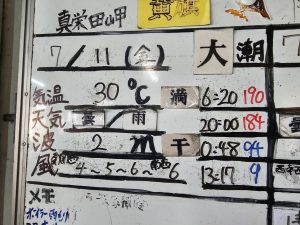 真栄田岬
7/11(金) 大潮
気温 30℃ 満 6:20 190
天気 曇/雨 20:00 184
波 2m 干 0:48 94
風 4~5~6~ 6 13:17 9
メモ